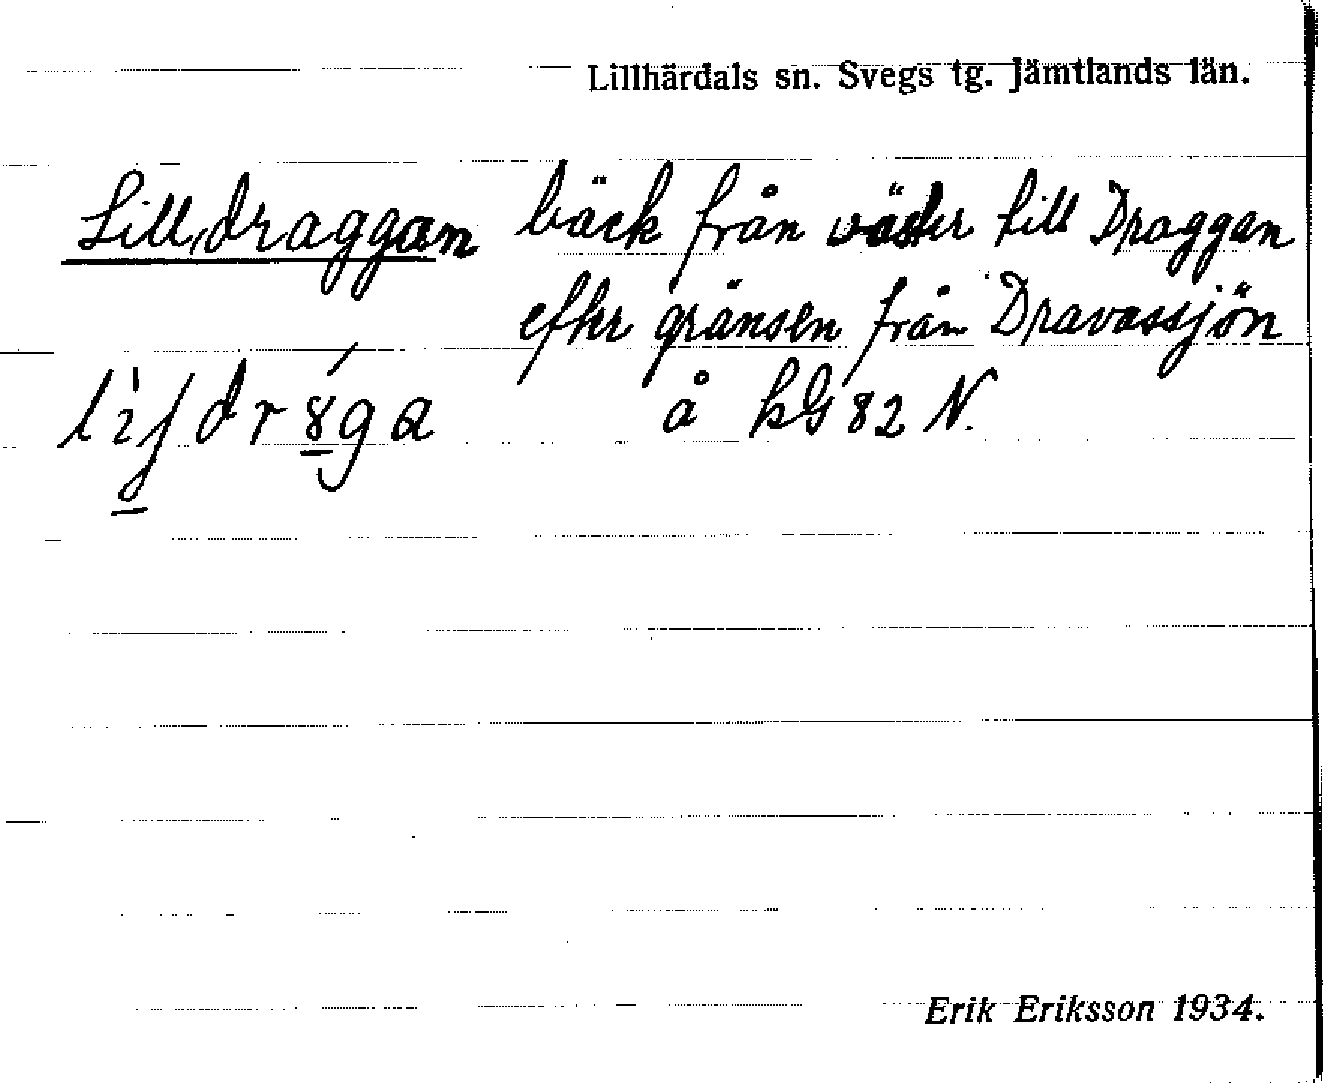 Lillhärdals sn. Svegs tg. Jämtlands län.
Lill,draggan bäck från väster till Draggan
efter gränsen från Dravassjön
å kG 82 N.
Erik Eriksson 1934.